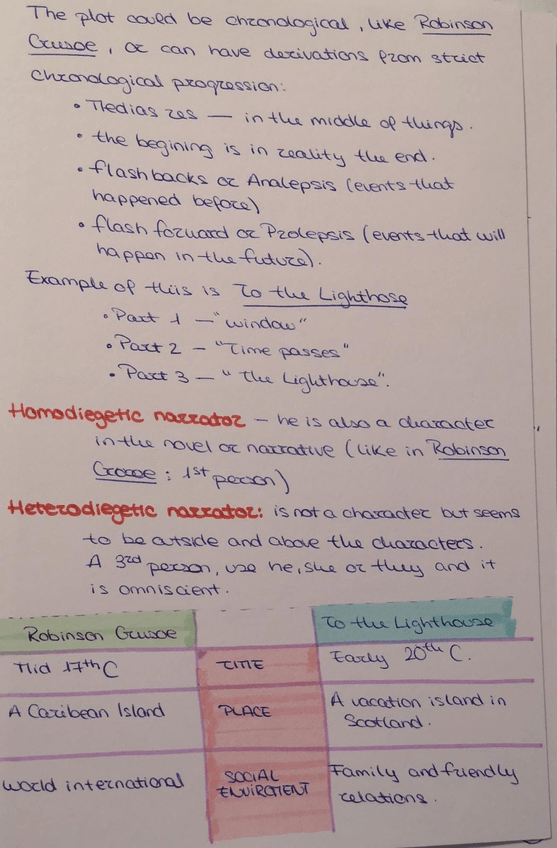 The plot could be chronological, like Robinson
Crusoe, or can have derivations from strict
chronological progression:
• Medias res — in the middle of things.
• the begining is in reality the end.
• flashbacks or Analepsis (events that
happened before)
• flash forward or Prolepsis (events that will
happen in the future).
Example of this is To the Lighthose
• Part 1 – "window"
• Part 2 – "Time passes"
• Part 3 – "The Lighthouse".
Homodiegetic narrator – he is also a character
in the novel or narrative (like in Robinson
Crosoe; 1st person)
Heterodiegetic narrator: is not a character but seems
to be outside and above the characters.
A 3rd person, use he, she or they and it
is omniscient.
Robinson Crusoe
To the Lighthouse
Mid 17th C
TIME
Early 20th C.
A Caribean Island
PLACE
A vacation island in
Scotland.
World international
SOCIAL
ENVIROMENT
Family and friendly
relations.